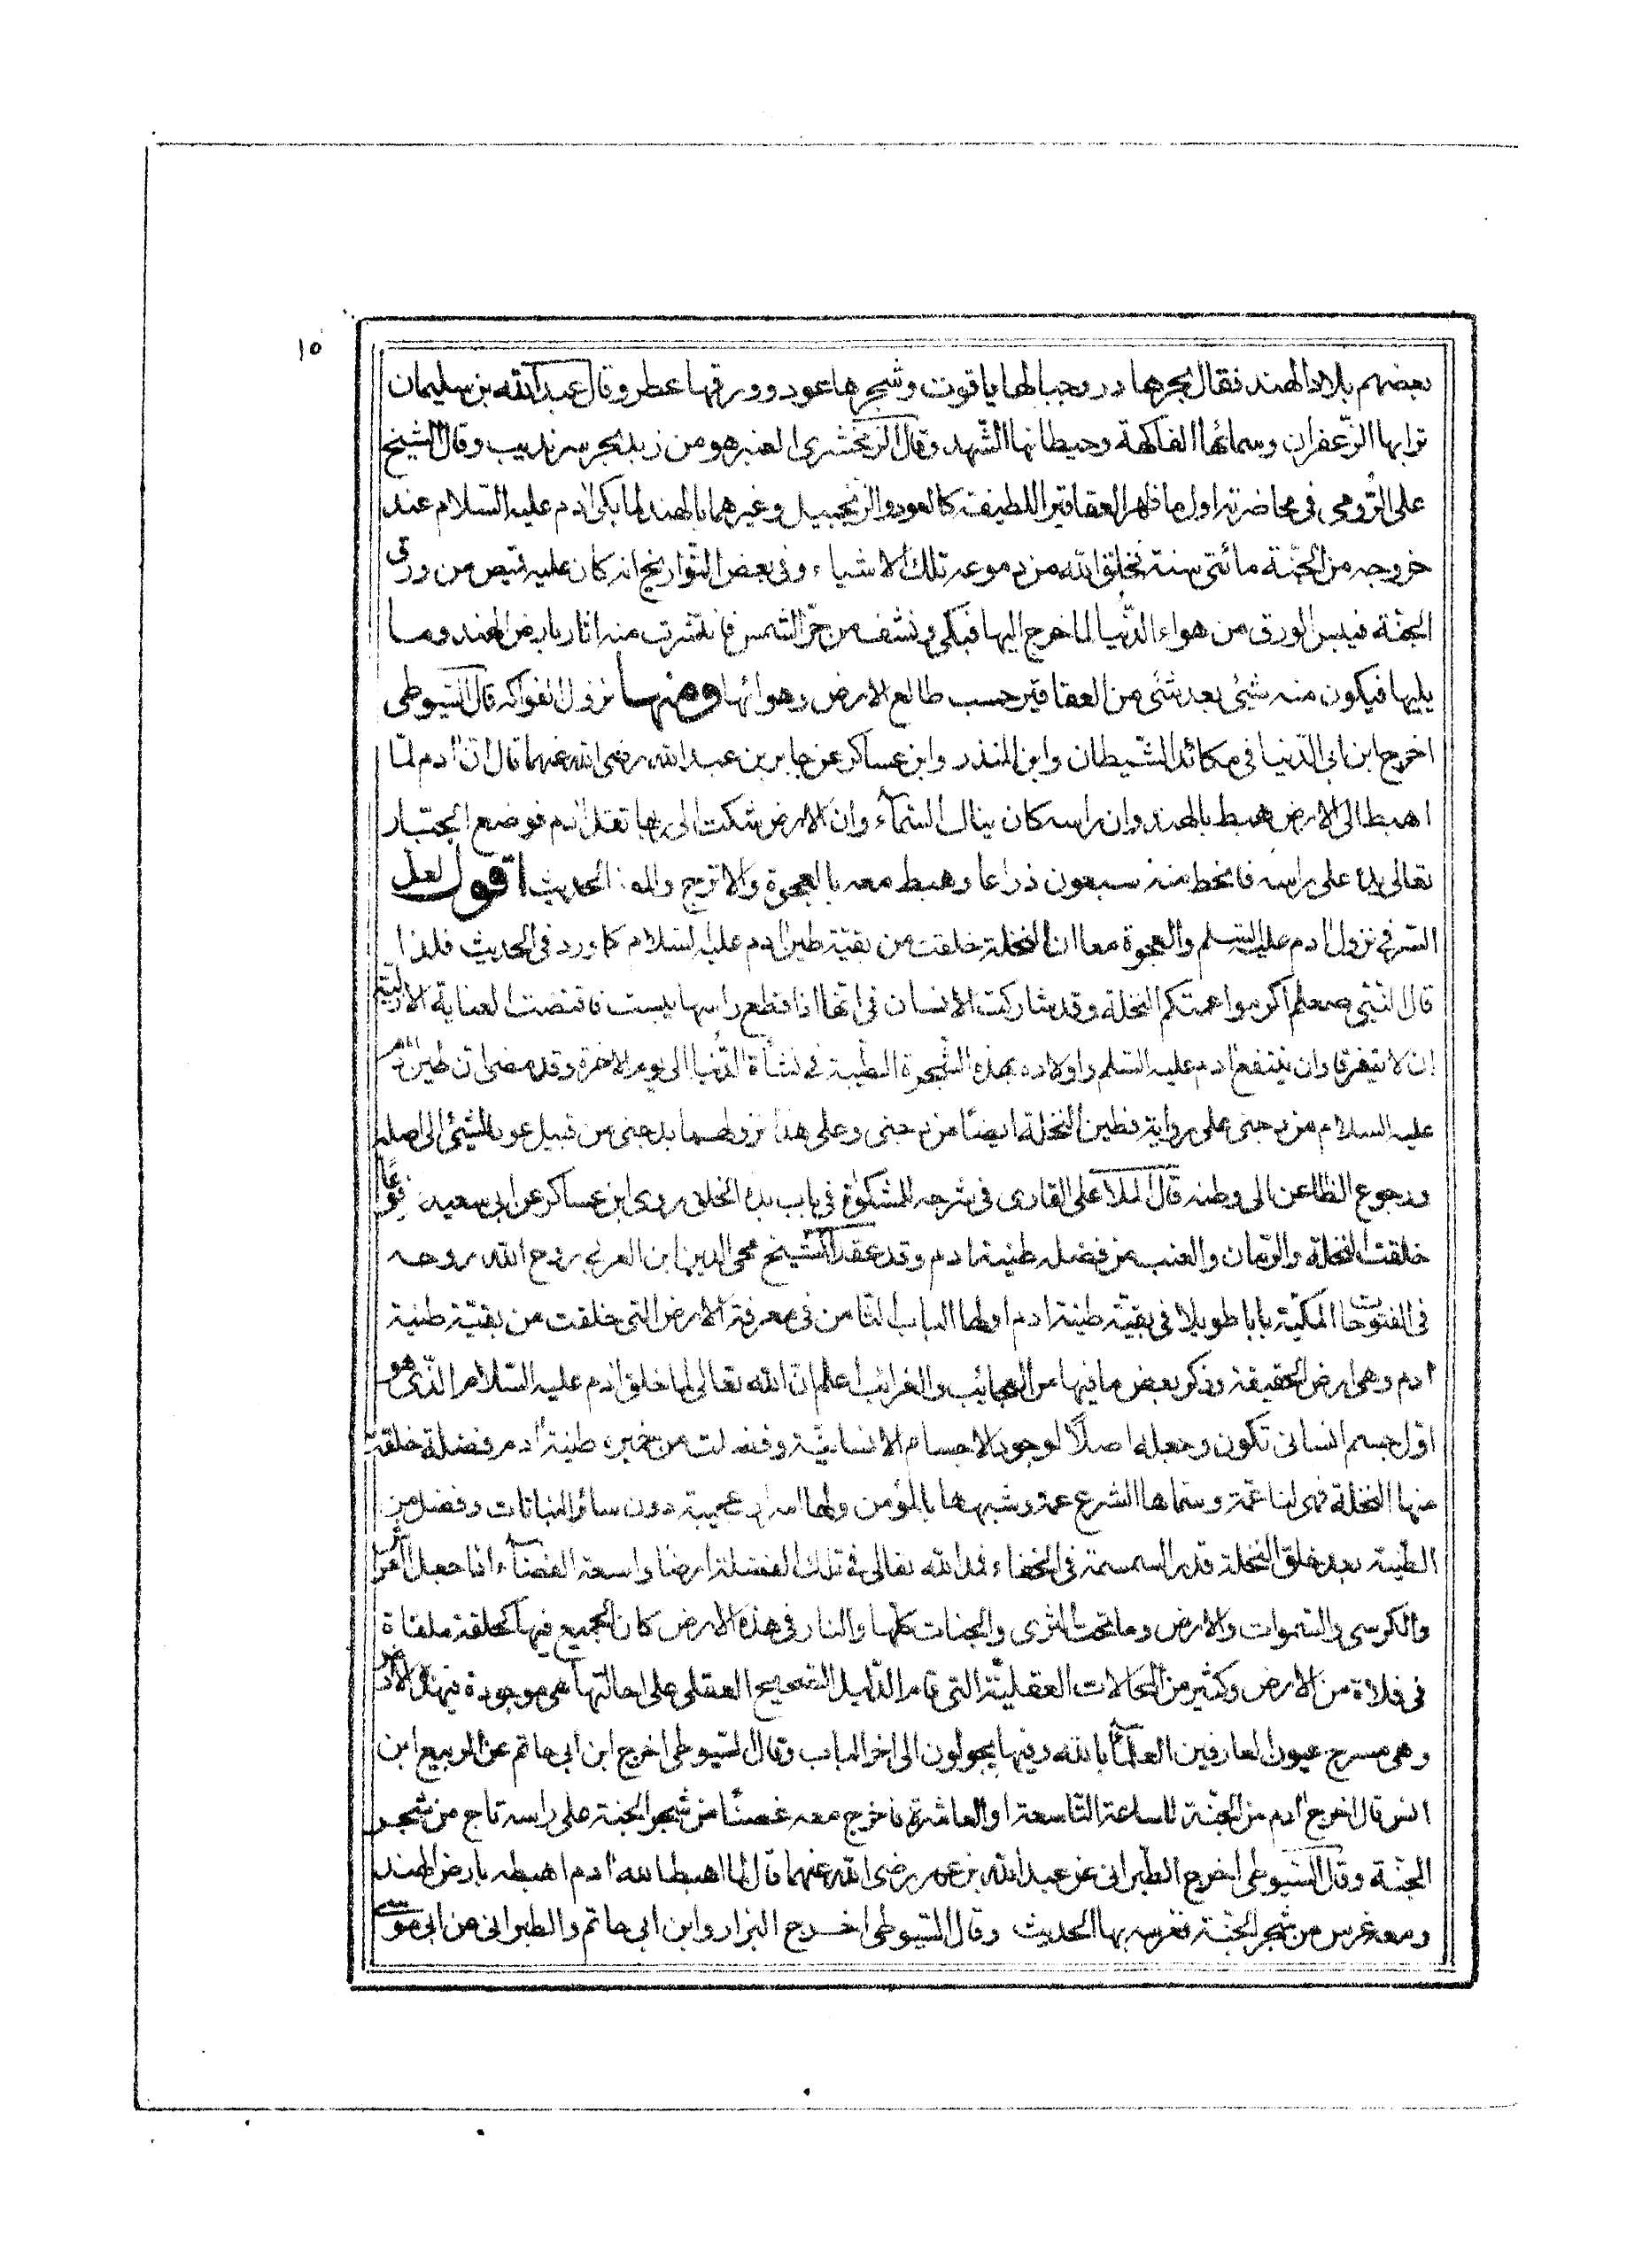 ١٥
بعضهم بلاد الهند فقال بحرها در وجبالها ياقوت وشجرها عود وورقها عطر وقال عبد الله بن سليمان
ترابها الزعفران وسمائها الفاكهة وحيطانها الشهد وقال الزمخشرى العنبر هو من زبد بحر سرنديب وقال الشيخ
على الرومى فى محاضرته اول ما ظهر العقاقير اللطيفة كالعود والزنجبيل وغيرهما بالهند لما بكى ادم عليه السلام عند
خروجه من الجنة مائتى سنة فخلق الله من دموعه تلك الاشياء وفى بعض التواريخ انه كان عليه قميص من ورق
الجنة فيبس الورق من هواء الدنيا لما خرج اليها فبكى ونشف من حر الشمس فانتشرت منه اثار بارض الهند وما
يليها فيكون منه شئ بعد شئ من العقاقير حسب طالع الارض وهوائها ومنها نزول الفواكه قال السيوطى
اخرج ابن ابى الدنيا فى مكائد الشيطان وابن المنذر وابن عساكر عن جابر بن عبد الله رضى الله عنهما قال ان ادم لما
اهبط الى الارض هبط بالهند وان راسه كان ينال السماء وان الارض شكت الى ربها ثقل ادم فوضع الجبار
تعالى يده على راسه فانحط منه سبعون ذراعا وهبط معه بالعجوة والاترج والموز الحديث اقول لعل
السر فى نزول ادم عليه السلم والعجوة معا ان النخلة خلقت من بقية طين ادم عليه السلام كما ورد فى الحديث فلذا
قال النبى صعلم اكرموا عمتكم النخلة وقد شاركت الانسان فى انها اذا قطع راسها يبست فاقتضت العناية الازلية
ان لا تيفرقا وان ينتفع ادم عليه السلم واولاده بهذه الشجرة الطيبة فى نشأة الدنيا الى يوم الاخرة وقد مضى ان طين ادم
عليه السلام من دحنى على رواية فطين النخلة ايضا من دحنى وعلى هذا نزولهما بدحنى من قبيل عود الشئ الى اصله
ورجوع الظاعن الى وطنه قال الملا على القارى فى شرحه للمشكوة فى باب بدء الخلق روى ابن عساكر عن ابى سعيد مرفوعا
خلقت النخلة والرمان والعنب من فضل طينة ادم وقد عقد الشيخ محى الدين ابن العربى روح الله روحه
فى الفتوحات المكية بابا طويلا فى بقية طينة ادم اولها الباب الثامن فى معرفة الارض التى خلقت من بقية طينة
ادم وهى ارض الحقيقة وذكر بعض ما فيها من العجائب والغرائب اعلم ان الله تعالى لما خلق ادم عليه السلام الذى هو
اول جسم انسانى تكون وجعله اصلا لوجود الاجسام الانسانية وفضلت من خميرة طينة ادم فضلة خلق
منها النخلة فهى لنا عمة وسماها الشرع عمة وشبهها بالمؤمن ولها اسرار عجيبة دون سائر النباتات وفضل من
الطينة بعد خلق النخلة قدر السمسمة فى الخفاء فمد الله تعالى فى تلك الفضلة ارضا واسعة الفضاء اذا جعل العرش
والكرسى والسموات والارض وما تحت الثرى والجنات كلها والنار فى هذه الارض كان الجميع فيها كحلقة ملقاة
فى فلاة من الارض وكثير من المحالات العقلية التى قام الدليل الصحيح العقلى على احالتها هى موجودة فى هذه الارض
وهى مسرح عيون العارفين العلماء بالله وفيها يجولون الى اخر الباب وقال السيوطى اخرج ابن ابى حاتم عن الربيع ابن
انس قال اخرج ادم من الجنة للساعة التاسعة او العاشرة فاخرج معه غصنا من شجر الجنة على راسه تاج من شجر
الجنة وقال السيوطى اخرج الطبرانى عن عبد الله بن عمر رضى الله عنهما قال لما اهبط الله ادم اهبطه بارض الهند
ومعه غرس من شجر الجنة فغرسه بها الحديث وقال السيوطى اخرج البزار وابن ابى حاتم والطبرانى عن ابى موسى